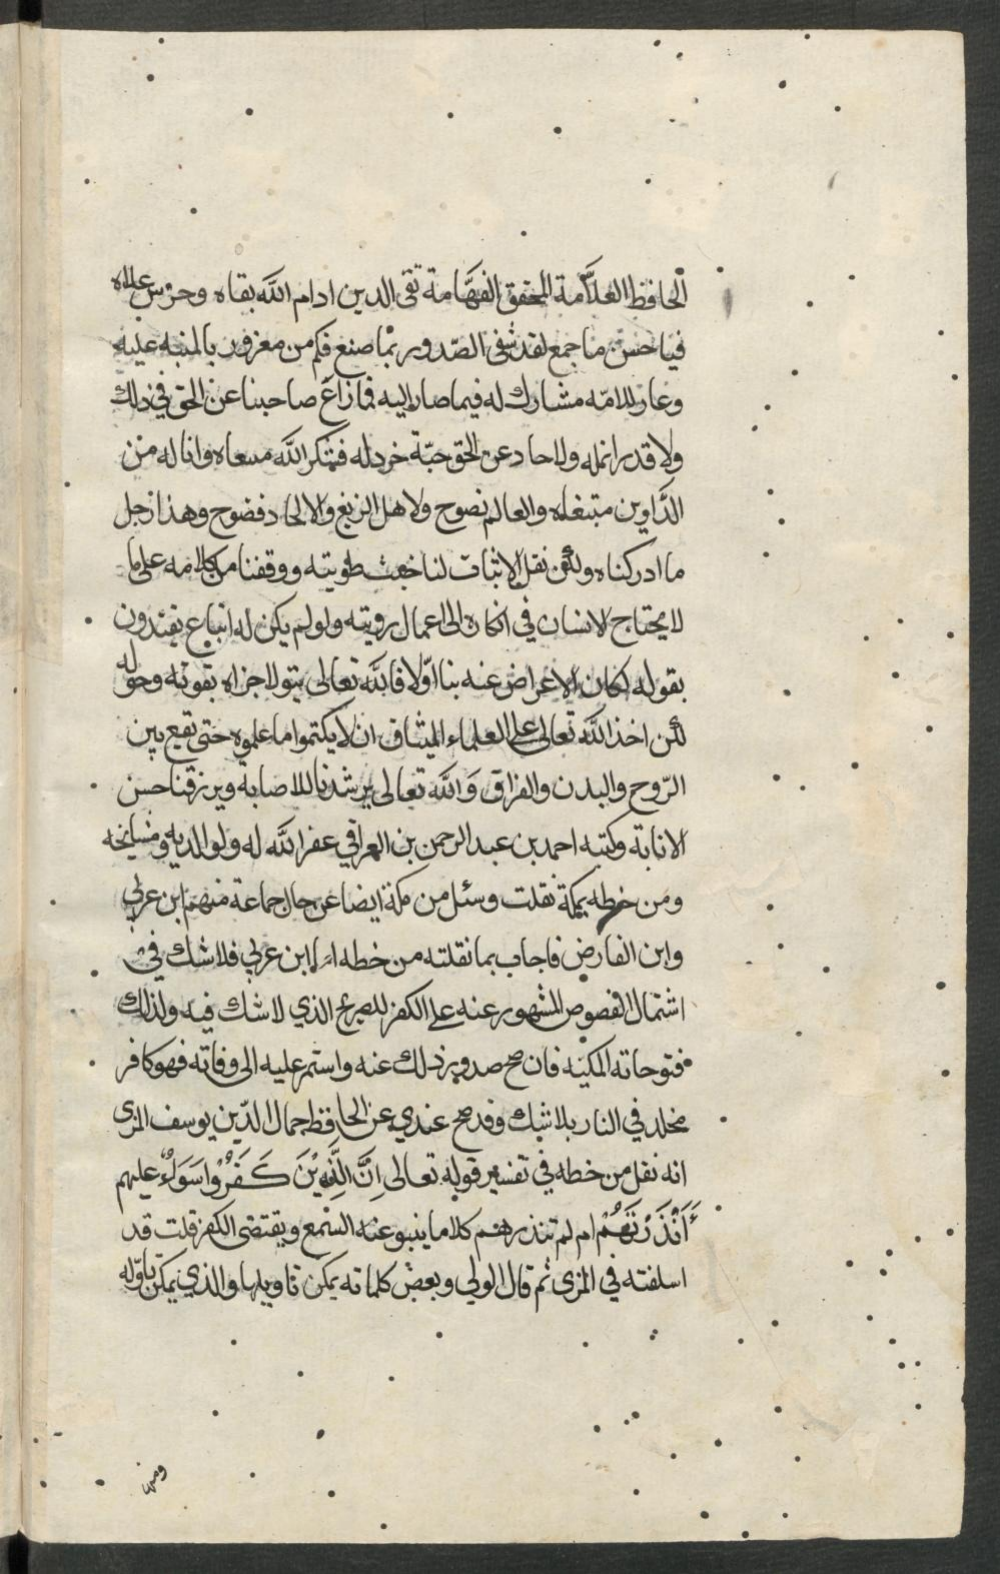 الحافظ العلاّمة المحقق الفهّامة تقى الدين ادام الله بقاه وحرس علاه
فيا حسن ما جمع لقد شفى الصّدور بما صنع فكم من مغرور بالمنبه عليه
وعار للامّه مشارك له فيما صار اليه فما زاغ صاحبنا عن الحق في ذلك
ولا قدر انمله ولا حاد عن الحق حبّة خردله فشكر الله مسعاه واناله من
الدّارين مبتغاه والعالم نصوح ولاهل الزيغ والالحاد فضوح وهذا رجل
ما ادركناه ولكن نقل الاثبات لنا خبث طويته ووقفنا من كلامه على ما
لا يحتاج الانسان في انكاره الى اعمال رويته ولو لم يكن له اتباع يفتدون
بقوله لكان الاعراض عنه بنا اولا فالله تعالى يتولا جزاه بقوته وحوله
لكن اخذ الله تعالى على العلماء الميثاق ان لا يكتموا ما علموه حتى تقع بين
الرّوح والبدن والفراق وَالله تعالى يرشدنا للاصابة ويرزقنا حسن
الانابة وكتبه احمد بن عبد الرحمن بن العراقي غفر الله له ولوالديه ومشايخه
ومن خطه بمكة نقلت وسئل من مكة ايضا عن حال جماعة منهم ابن عربي
وابن الفارض فاجاب بما نقلته من خطه اما ابن عربي فلا شك في
اشتمال الفصوص المشهور عنه على الكفر الصريح الذي لا شك فيه ولذلك
فتوحاته المكيّة فان صح صدور ذلك عنه واستمر عليه الى وفاته فهو كافر
مخلد في النار بلا شك وقد صح عندي عن الحافظ جمال الدّين يوسف المزى
انه نقل من خطه في تفسير قوله تعالى اِنَّ الَّذِيْنَ كَفَرُوْا سَوَاءٌ عليهم
ءَاَنْذَرْتَهُمْ ام لم تنذرهم كلاما ينبو عنه السّمع ويقتضى الكفر قلت قد
اسلفته في المزى ثم قال الولي وبعض كلماته يمكن تاويلها والذي يمكن تاوّله
ومنها